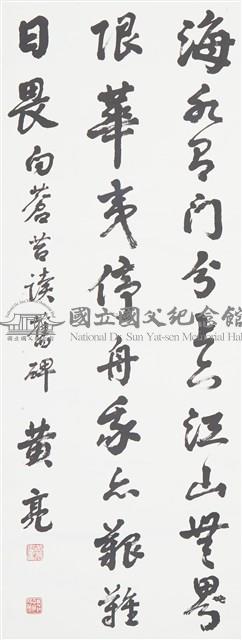 海水有門分上下江山無界
限華夷停舟我亦艱難
日畏向蒼苔讀舊碑 黃亮
國立國父紀念館
National Dr. Sun Yat-sen Memorial Hall